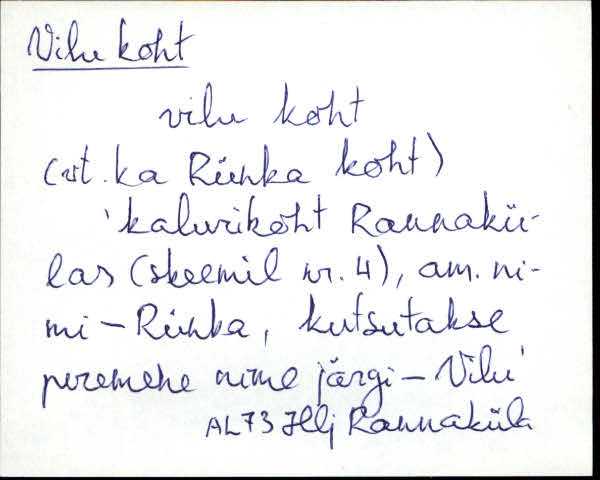 Vilu koht
vilu koht
(vt. ka Rünka koht)
'kalurikoht Rannakü-
las (skeemil nr. 4), am. ni-
mi - Rünka, kutsutakse
peremehe nime järgi - Vilu'
AL73 Hlj Rannaküla